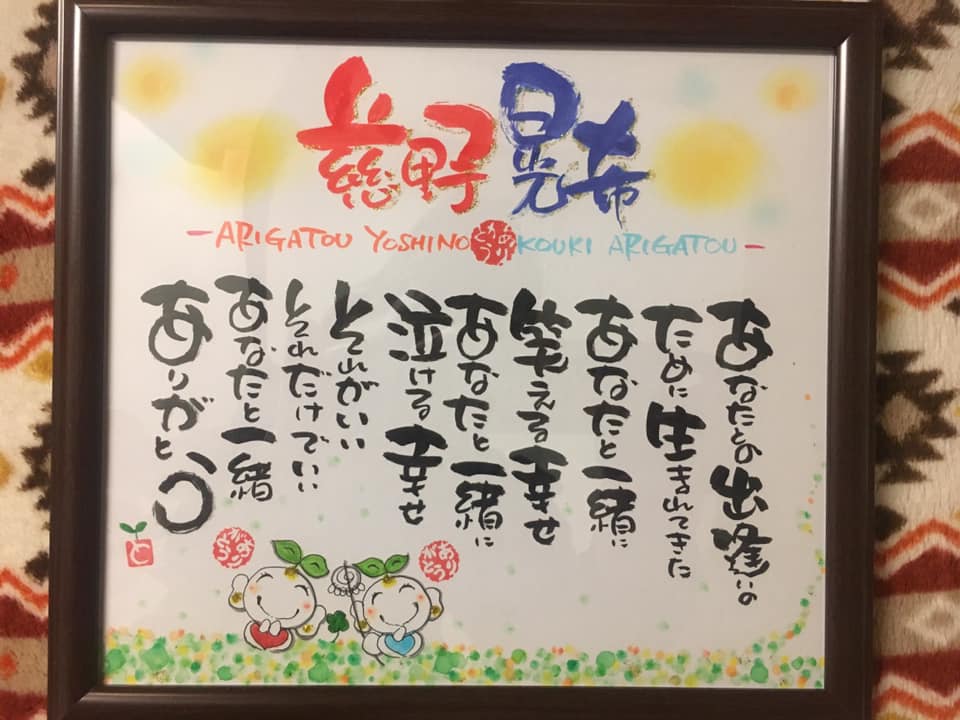 慈野 晃布
-ARIGATOU YOSHINO ありがとう KOUKI ARIGATOU-
あなたとの出逢いの
ために生まれてきた
あなたと一緒に
笑える幸せ
あなたと一緒に
泣ける幸せ
それがいい
それだけでいい
あなたと一緒
ありがとう
ありがとう
ありがとう